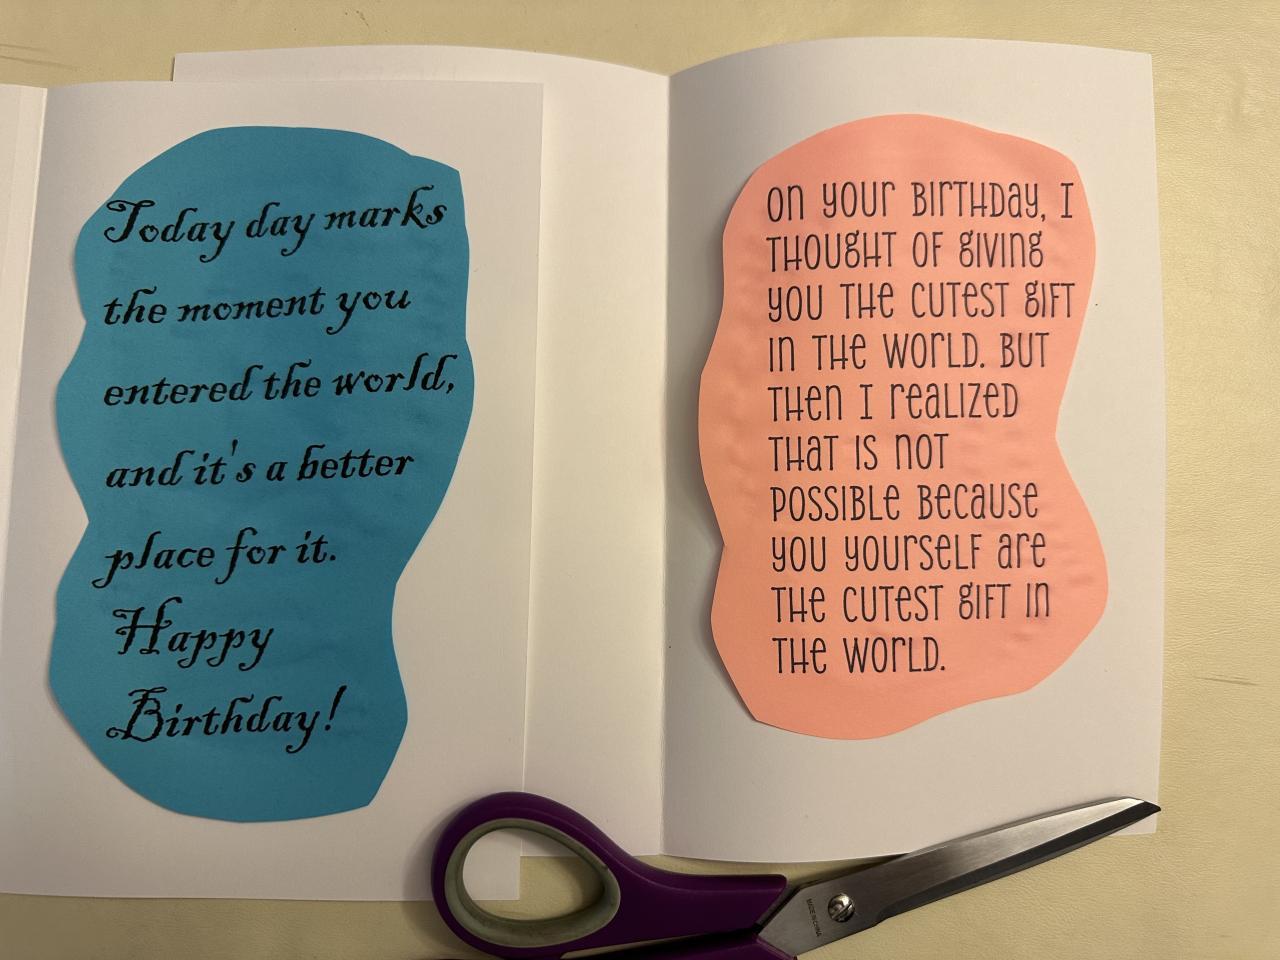 Today day marks
the moment you
entered the world,
and it's a better
place for it.
Happy
Birthday!
On YOUR BIRTHDAY, I
THOUGHT OF GIVING
YOU THE CUTEST GIFT
IN THE WORLD. BUT
THEN I REALIZED
THAT IS NOT
POSSIBLE BECAUSE
YOU YOURSELF ARE
THE CUTEST GIFT IN
THE WORLD.
MADE IN CHINA